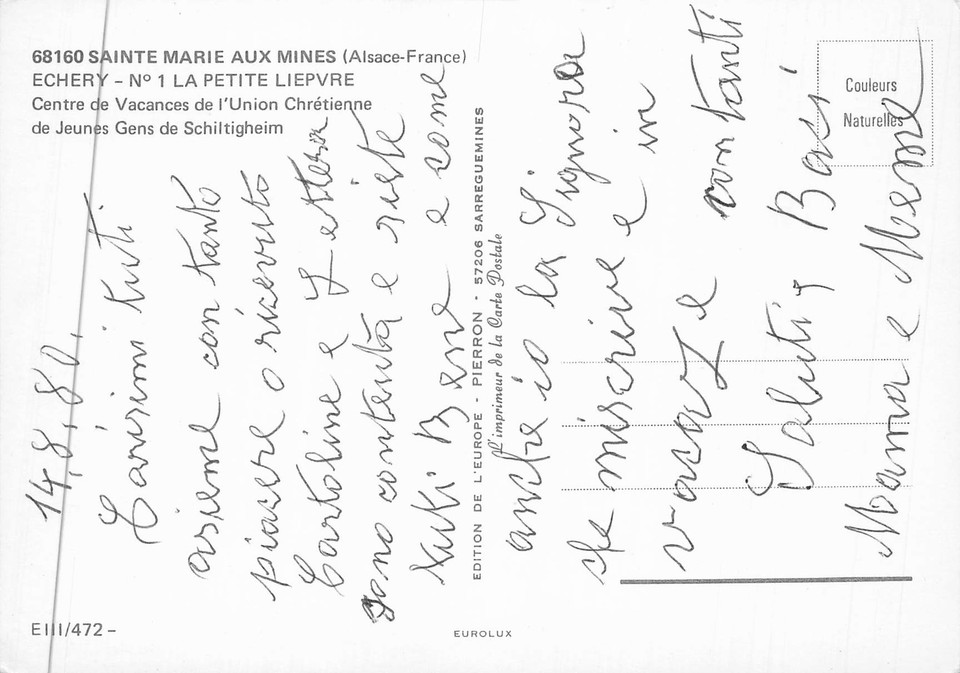 68160 SAINTE MARIE AUX MINES (Alsace-France)
ECHERY – Nº 1 LA PETITE LIEPVRE
Centre de Vacances de l'Union Chrétienne
de Jeunes Gens de Schiltigheim
14.8.80.
Carisimi tuti
asieme con tanto
piacere o ricevuto
Cartoline e Lettera
sono contenta e siete
tutti Bene e come
anche io la Signora
che miscrive e in
vacanze con tanti
Saluti, Baci
Mama e
EDITION DE L'EUROPE - PIERRON - 57206 SARREGUEMINES
L'imprimeur de la Carte Postale
Couleurs
Naturelles
EIII/472 –
EUROLUX